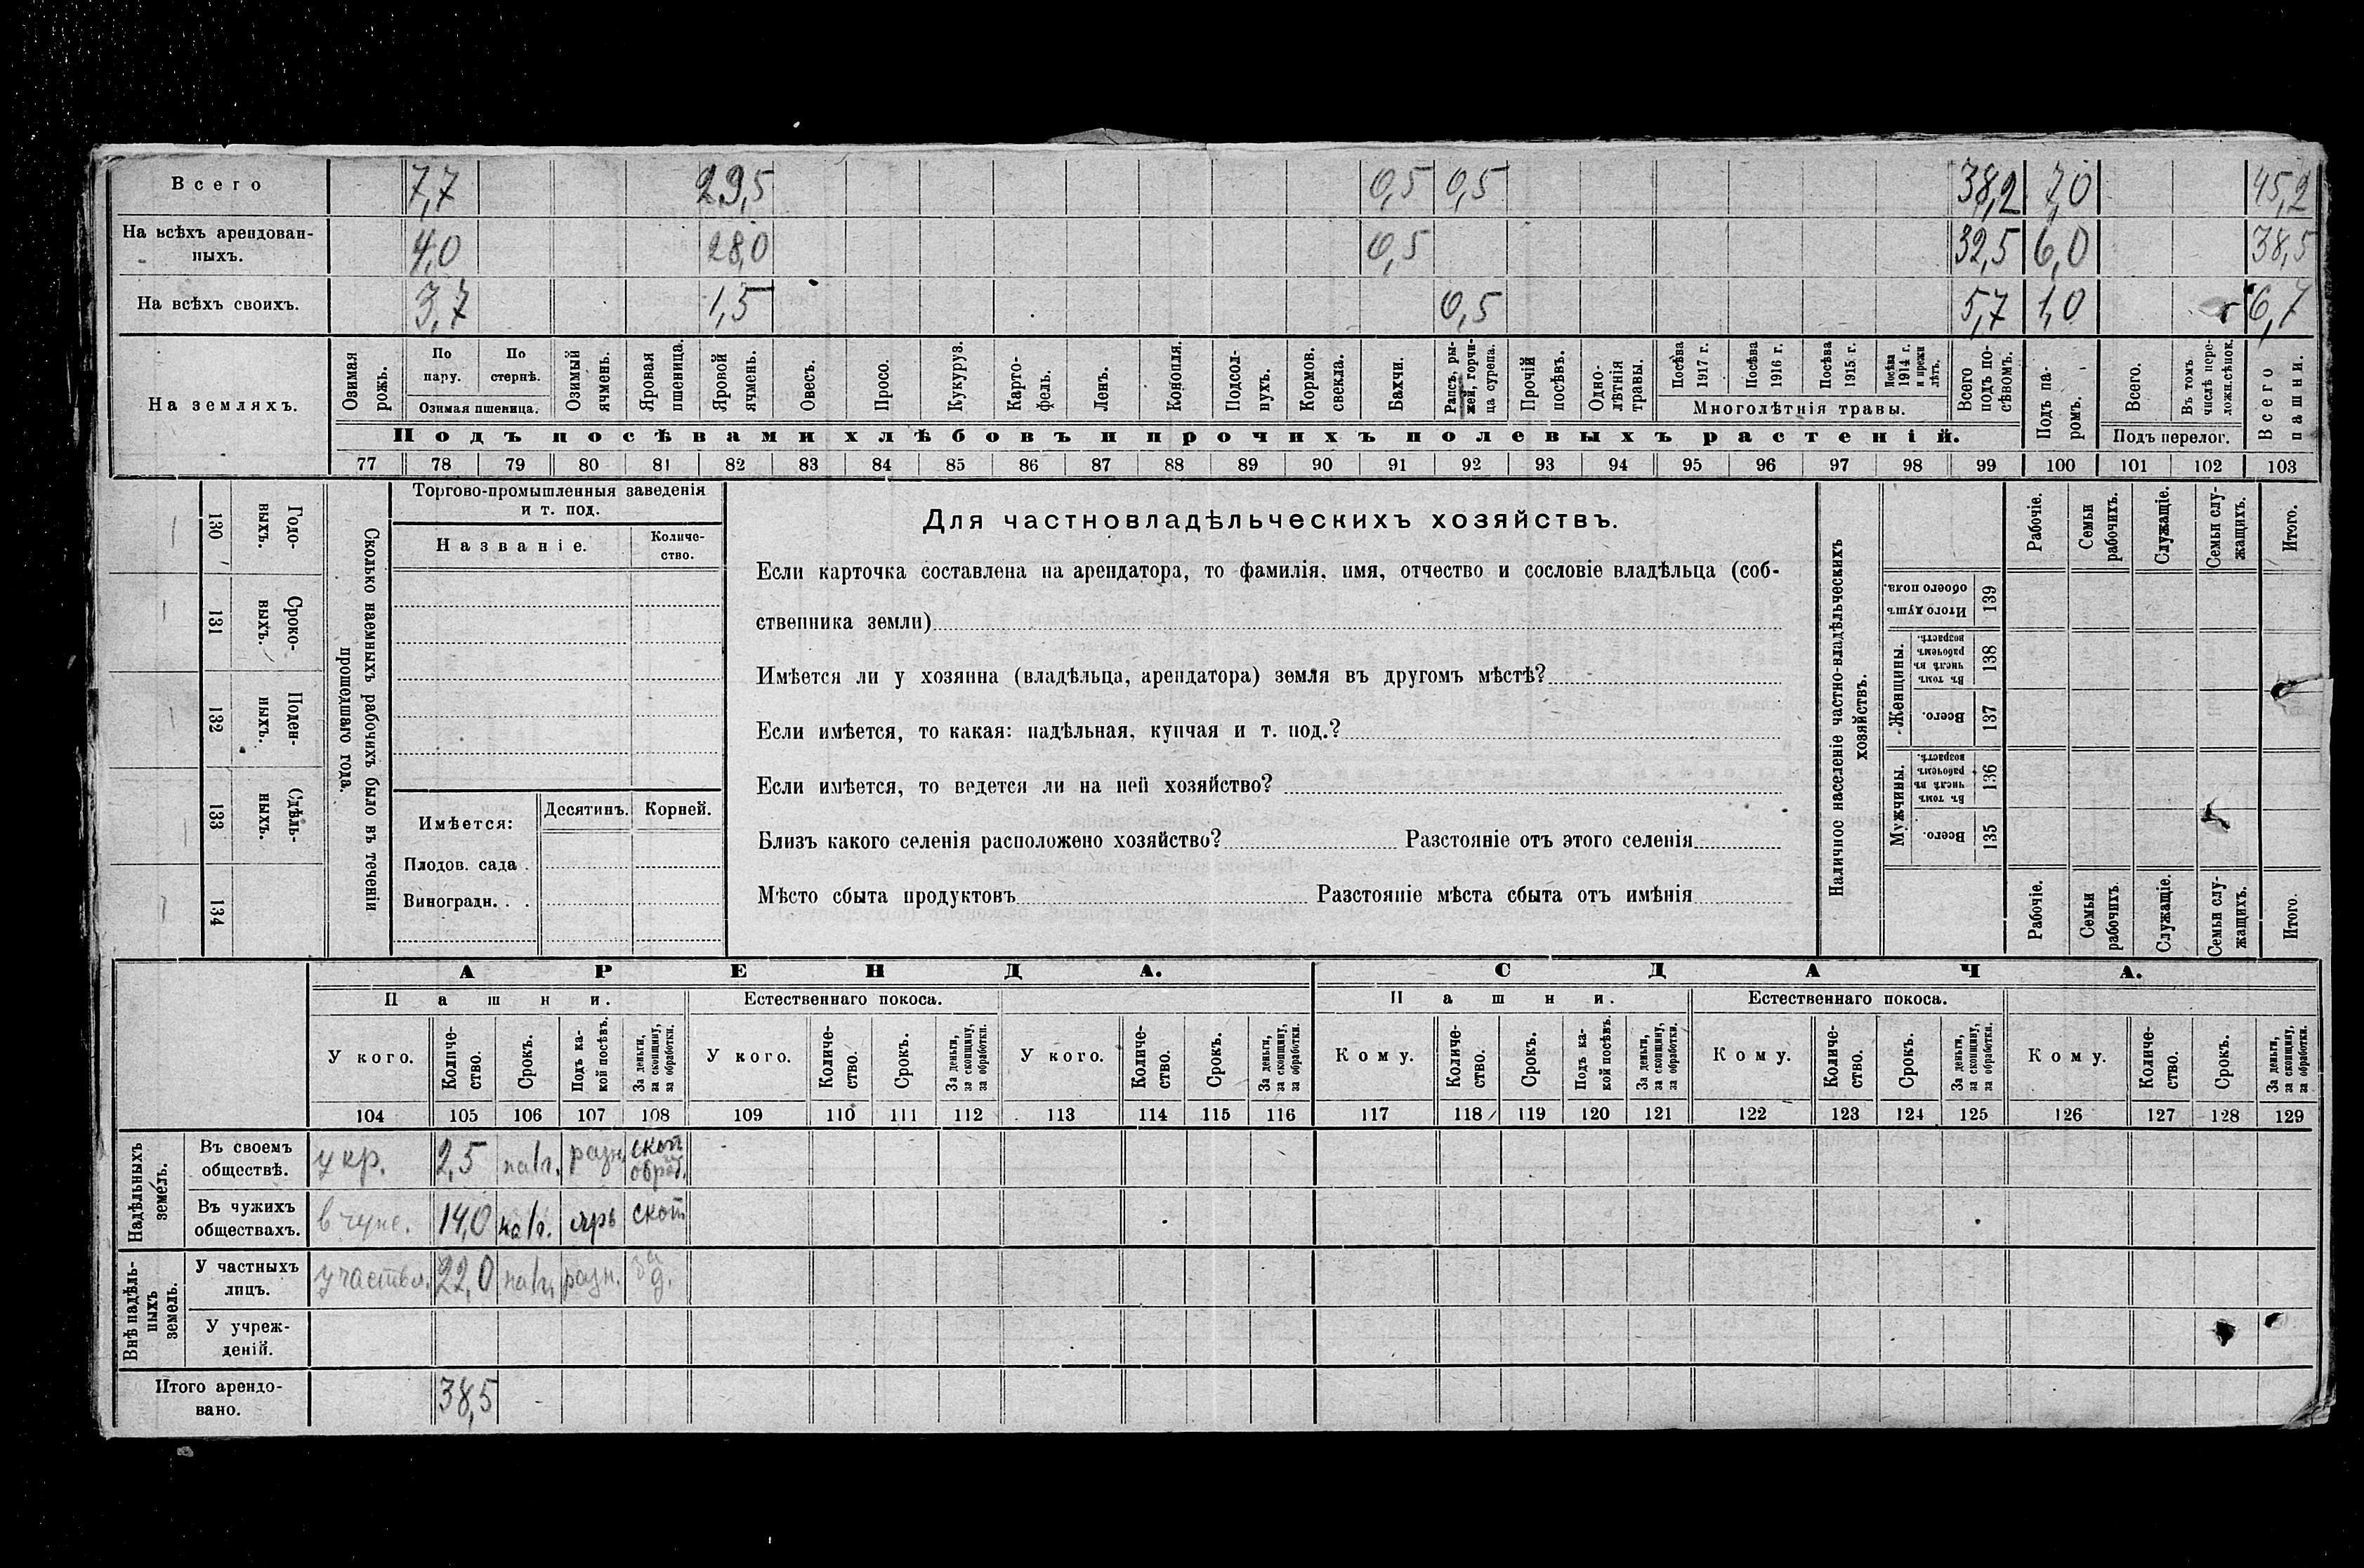 Всего 7,7 29,5 0,5 0,5 38,2 7,0 45,2
На всѣхъ арендован-
ныхъ. 4,0 28,0 0,5 32,5 6,0 38,5
На всѣхъ своихъ. 3,7 1,5 0,5 5,7 1,0 6,7
На земляхъ.
Озимая рожь.
По пару.
По стернѣ.
Озимая пшеница.
Озимый ячмень.
Яровая пшеница.
Яровой ячмень.
Овесъ.
Просо.
Кукуруз.
Карто-
фель.
Ленъ.
Конопля.
Подсол-
нухъ.
Кормов. свекла.
Бахчи.
Рапсъ, ры-
жей, горчи-
ца сурепа.
Прочій посѣвъ.
Одно-
лѣтнія
травы.
Посѣва 1917 г.
Посѣва 1916 г.
Посѣва 1915 г.
Посѣва 1914 г. и прежн лѣтъ.
Многолѣтнія травы.
Всего
подъ по-
сѣвомъ.
Подъ па-
ромъ.
Всего.
Въ томъ
числѣ пере-
ложн.сѣнок.
Подъ перелог.
Всего пашни.
Подъ посѣвами хлѣбовъ и прочихъ полевыхъ растеній.
77 78 79 80 81 82 83 84 85 86 87 88 89 90 91 92 93 94 95 96 97 98 99 100 101 102 103
130 Годо-
выхъ.
131 Сроко-
выхъ.
132 Поден-
ныхъ.
133 Сдѣль-
ныхъ.
134
Сколько наемныхъ рабочихъ было въ теченіи
прошолшаго года.
Торгово-промышленныя заведенія
и т. под.
Названіе.
Количе-
ство.
Имѣется:
Десятинъ. Корней.
Плодов. сада .
Виноградн. . .
Для частновладѣльческихъ хозяйствъ.
Если карточка составлена на арендатора, то фамилія, имя, отчество и сословіе владѣльца (соб-
ственника земли)
Имѣется ли у хозяина (владѣльца, арендатора) земля въ другомъ мѣстѣ?
Если имѣется, то какая: надѣльная, купчая и т. под.?
Если имѣется, то ведется ли на ней хозяйство?
Близъ какого селенія расположено хозяйство? Разстояніе отъ этого селенія
Мѣсто сбыта продуктовъ Разстояніе мѣста сбыта отъ имѣнія
Наличное населеніе частно-владѣльческихъ
хозяйствъ.
Рабочіе.
Семьи рабочихъ.
Служащіе.
Семьи слу-
жащихъ.
Итого.
Итого душ
обоего пола.
139
Женщины.
Въ томъ
числѣ въ
рабочемъ
возрастѣ.
138
Всего.
137
Мужчины.
Въ томъ
числѣ въ
рабочемъ
возрастѣ.
136
Всего.
135
Рабочіе.
Семьи рабочихъ
Служащіе.
Семьи слу-
жащихъ.
Итого.
АРЕНДА. СДАЧА.
Пашни. Естественнаго покоса. Пашни. Естественнаго покоса.
У кого.
Количе-
ство.
Срокъ.
Подъ ка-
кой посѣвъ.
За деньги,
за скопщину,
за обработки.
У кого.
Количе-
ство.
Срокъ.
За деньги,
за скопщину,
за обработки.
У кого.
Количе-
ство.
Срокъ.
За деньги,
за скопщину,
за обработки.
Кому.
Количе-
ство.
Срокъ.
Подъ ка-
кой посѣвъ.
За деньги,
за скопщину,
за обработки.
Кому.
Количе-
ство.
Срокъ.
За деньги,
за скопщину,
за обработки.
Кому.
Количе-
ство.
Срокъ.
За деньги,
за скопщину,
за обработки.
104 105 106 107 108 109 110 111 112 113 114 115 116 117 118 119 120 121 122 123 124 125 126 127 128 129
Надѣльныхъ
земель.
Въ своемъ
обществѣ.
у кр. 2,5 на1г. разн. скоп
обраб.
Въ чужихъ
обществахъ.
14,0 на1г. ярь скоп
Внѣ надѣль-
ныхъ
земель.
У частныхъ
лицъ.
22,0 на1г. разн. за
д.
У учреж-
деній.
Итого арендо-
вано. 38,5